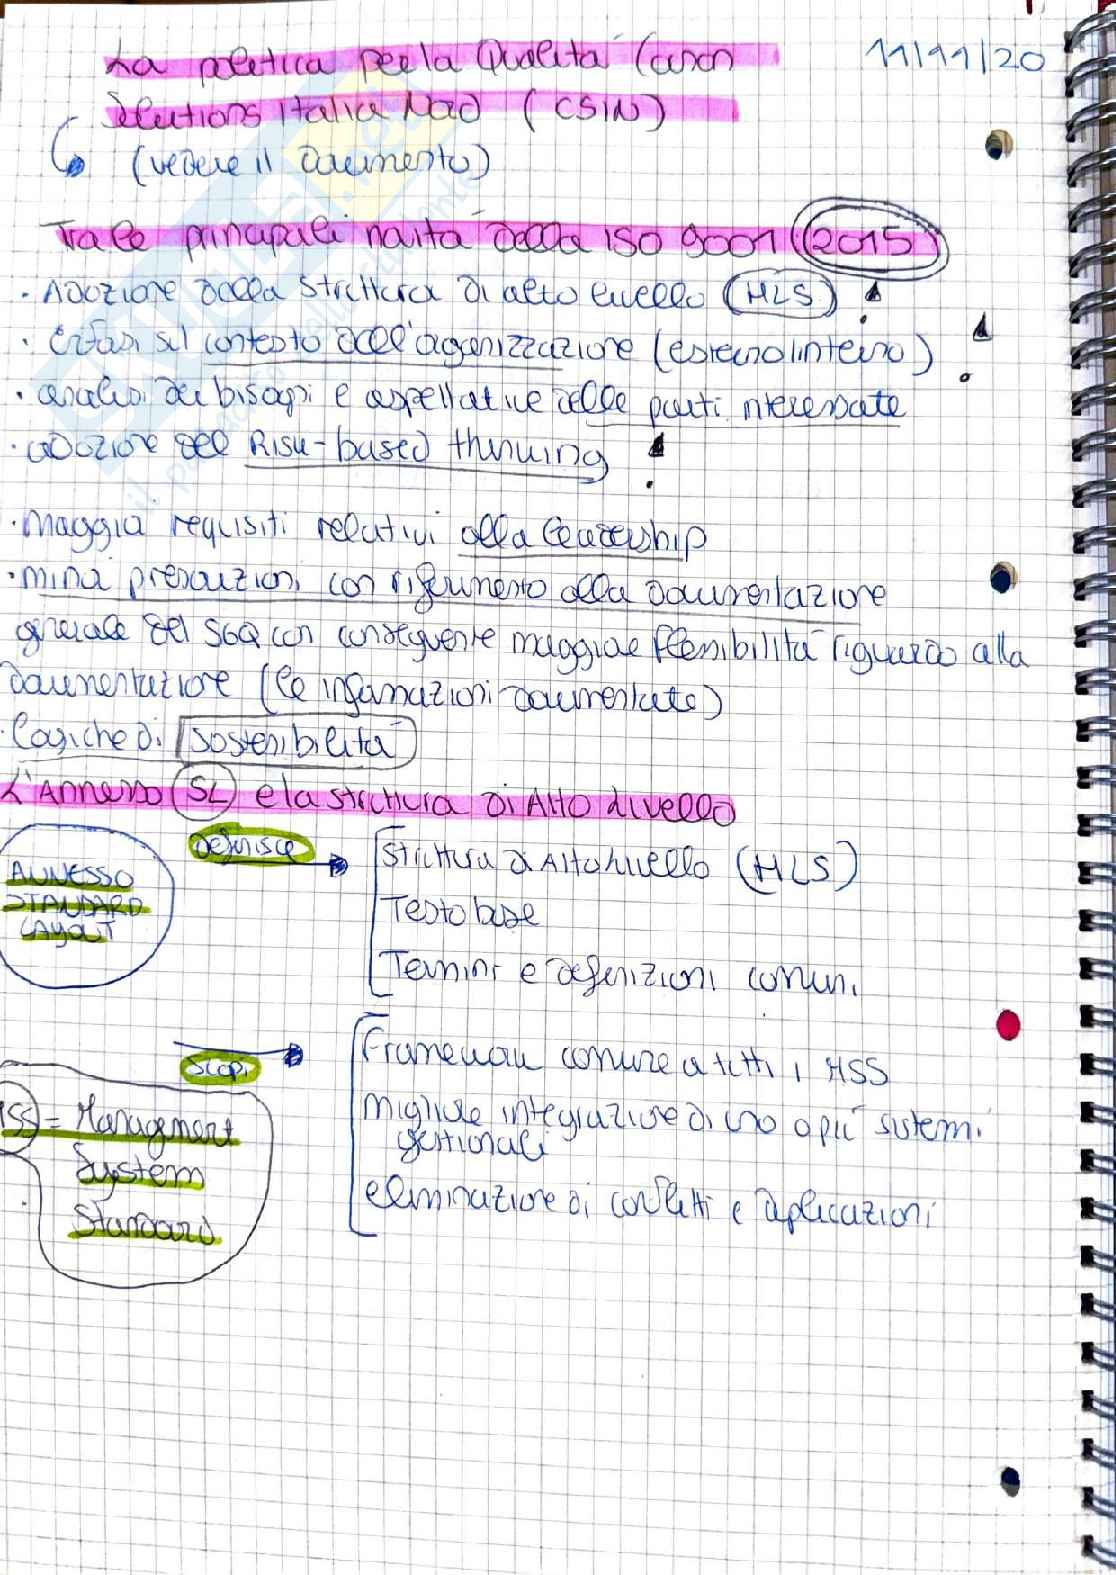 La politica per la Qualità (Canon 11/11/20
Solutions Italia Nord (CSIN)
(vedere il documento)
Tra le principali novità della ISO 9001 (2015)
· Adozione della struttura di alto livello (HLS) !
· Enfasi sul contesto dell'organizzazione (esterno/interno) !
· analisi dei bisogni e aspettative delle parti interessate
· adozione del Risk-based thinking !
· maggiori requisiti relativi alla leadership
· minori prescrizioni con riferimento alla documentazione
generale del SGQ con conseguente maggiore flessibilità riguardo alla
documentazione (le informazioni documentate)
· logiche di sostenibilità
L'Annesso (SL) e la struttura di Alto Livello
Definisce
Struttura di Alto livello (HLS)
ANNESSO
STANDARD
LAYOUT
Testo base
Termini e definizioni comuni
Scopi
Framework comune a tutti i MSS
migliore integrazione di uno o più sistemi
gestionali
eliminazione di conflitti e duplicazioni
SS = Management
System
Standard